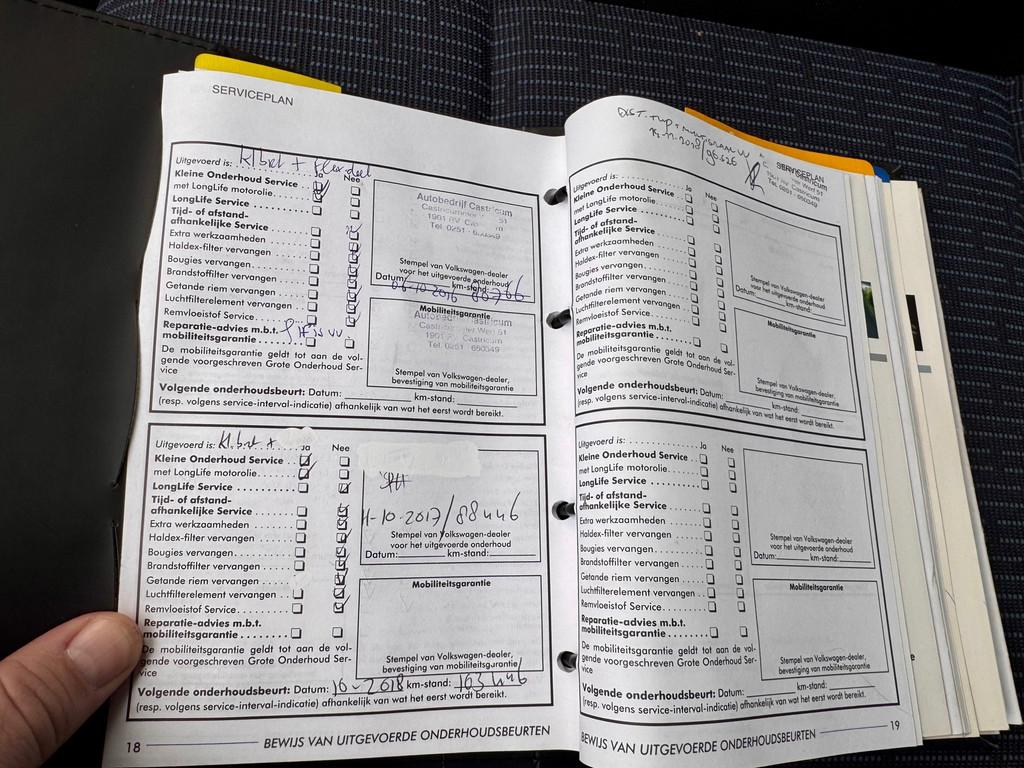 SERVICEPLAN
Uitgevoerd is: kl.brt +
Ja Nee
Kleine Onderhoud Service
met LongLife motorolie
LongLife Service
Tijd- of afstand-
afhankelijke Service
Extra werkzaamheden
Haldex-filter vervangen
Bougies vervangen
Brandstoffilter vervangen
Getande riem vervangen
Luchtfilterelement vervangen
Remvloeistof Service
Reparatie-advies m.b.t.
mobiliteitsgarantie
De mobiliteitsgarantie geldt tot aan de vol-
gende voorgeschreven Grote Onderhoud Ser-
vice
Volgende onderhoudsbeurt: Datum: km-stand:
(resp. volgens service-interval-indicatie) afhankelijk van wat het eerst wordt bereikt.
Autobedrijf Castricum
51
1901 RV
Tel. 0251 -
Stempel van Volkswagen-dealer
voor het uitgevoerde onderhoud
Datum: km-stand:
06-10-2016 80766
Mobiliteitsgarantie
Castricum
Werf 51
Castricum
Tel. 0251 650349
Stempel van Volkswagen-dealer,
bevestiging van mobiliteitsgarantie
Uitgevoerd is: kl.brt +
Ja Nee
Kleine Onderhoud Service
met LongLife motorolie
LongLife Service
Tijd- of afstand-
afhankelijke Service
Extra werkzaamheden
Haldex-filter vervangen
Bougies vervangen
Brandstoffilter vervangen
Getande riem vervangen
Luchtfilterelement vervangen
Remvloeistof Service
Reparatie-advies m.b.t.
mobiliteitsgarantie
De mobiliteitsgarantie geldt tot aan de vol-
gende voorgeschreven Grote Onderhoud Ser-
vice
Volgende onderhoudsbeurt: Datum: 10-2018 km-stand: 103446
(resp. volgens service-interval-indicatie) afhankelijk van wat het eerst wordt bereikt.
11-10-2017/88446
Stempel van Volkswagen-dealer
voor het uitgevoerde onderhoud
Datum: km-stand:
Mobiliteitsgarantie
Stempel van Volkswagen-dealer,
bevestiging van mobiliteitsgarantie
18 BEWIJS VAN UITGEVOERDE ONDERHOUDSBEURTEN
DIST. +
SERVICEPLAN
Werf 51
Castricum
Tel. 0251 - 650349
Uitgevoerd is:
Ja Nee
Kleine Onderhoud Service
met LongLife motorolie
LongLife Service
Tijd- of afstand-
afhankelijke Service
Extra werkzaamheden
Haldex-filter vervangen
Bougies vervangen
Brandstoffilter vervangen
Getande riem vervangen
Luchtfilterelement vervangen
Remvloeistof Service
Reparatie-advies m.b.t.
mobiliteitsgarantie
De mobiliteitsgarantie geldt tot aan de vol-
gende voorgeschreven Grote Onderhoud Ser-
vice
Volgende onderhoudsbeurt: Datum: km-stand:
(resp. volgens service-interval-indicatie) afhankelijk van wat het eerst wordt bereikt.
Stempel van Volkswagen-dealer
voor het uitgevoerde onderhoud
Datum: km-stand:
Mobiliteitsgarantie
Stempel van Volkswagen-dealer,
bevestiging van mobiliteitsgarantie
Uitgevoerd is:
Ja Nee
Kleine Onderhoud Service
met LongLife motorolie
LongLife Service
Tijd- of afstand-
afhankelijke Service
Extra werkzaamheden
Haldex-filter vervangen
Bougies vervangen
Brandstoffilter vervangen
Getande riem vervangen
Luchtfilterelement vervangen
Remvloeistof Service
Reparatie-advies m.b.t.
mobiliteitsgarantie
De mobiliteitsgarantie geldt tot aan de vol-
gende voorgeschreven Grote Onderhoud Ser-
vice
Volgende onderhoudsbeurt: Datum: km-stand:
(resp. volgens service-interval-indicatie) afhankelijk van wat het eerst wordt bereikt.
Stempel van Volkswagen-dealer
voor het uitgevoerde onderhoud
Datum: km-stand:
Mobiliteitsgarantie
Stempel van Volkswagen-dealer,
bevestiging van mobiliteitsgarantie
BEWIJS VAN UITGEVOERDE ONDERHOUDSBEURTEN 19